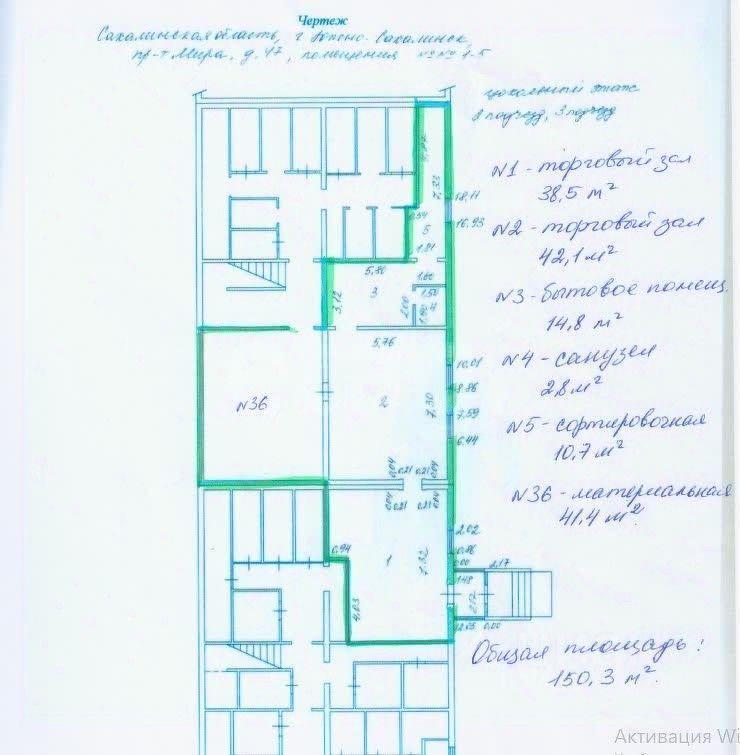 Чертеж
Сахалинская область, г. Южно-Сахалинск,
пр-т Мира, д. 47, помещения №№ 1-5
цокольный этаж
2 подъезд, 3 подъезд
N1 - торговый зал
38,5 м²
N2 - торговый зал
42,1 м²
N3 - бытовое помещ.
14,8 м²
N4 - санузел
2,8 м²
N5 - сортировочная
10,7 м²
N36 - материальная
41,4 м²
Общая площадь:
150,3 м².
7,33
18,11
0,54
16,93
5
1,81
5,80
1,60
3
1,50
4
3,12
2,00
1,90
5,76
10,01
8,86
N36
2
7,30
7,59
6,44
0,04
0,21
0,21
0,04
0,04
0,21
0,21
0,04
2,02
0,94
0,86
1
7,32
0,00
2,17
1,48
2,12
4,03
12,05
0,00
Активация Wi